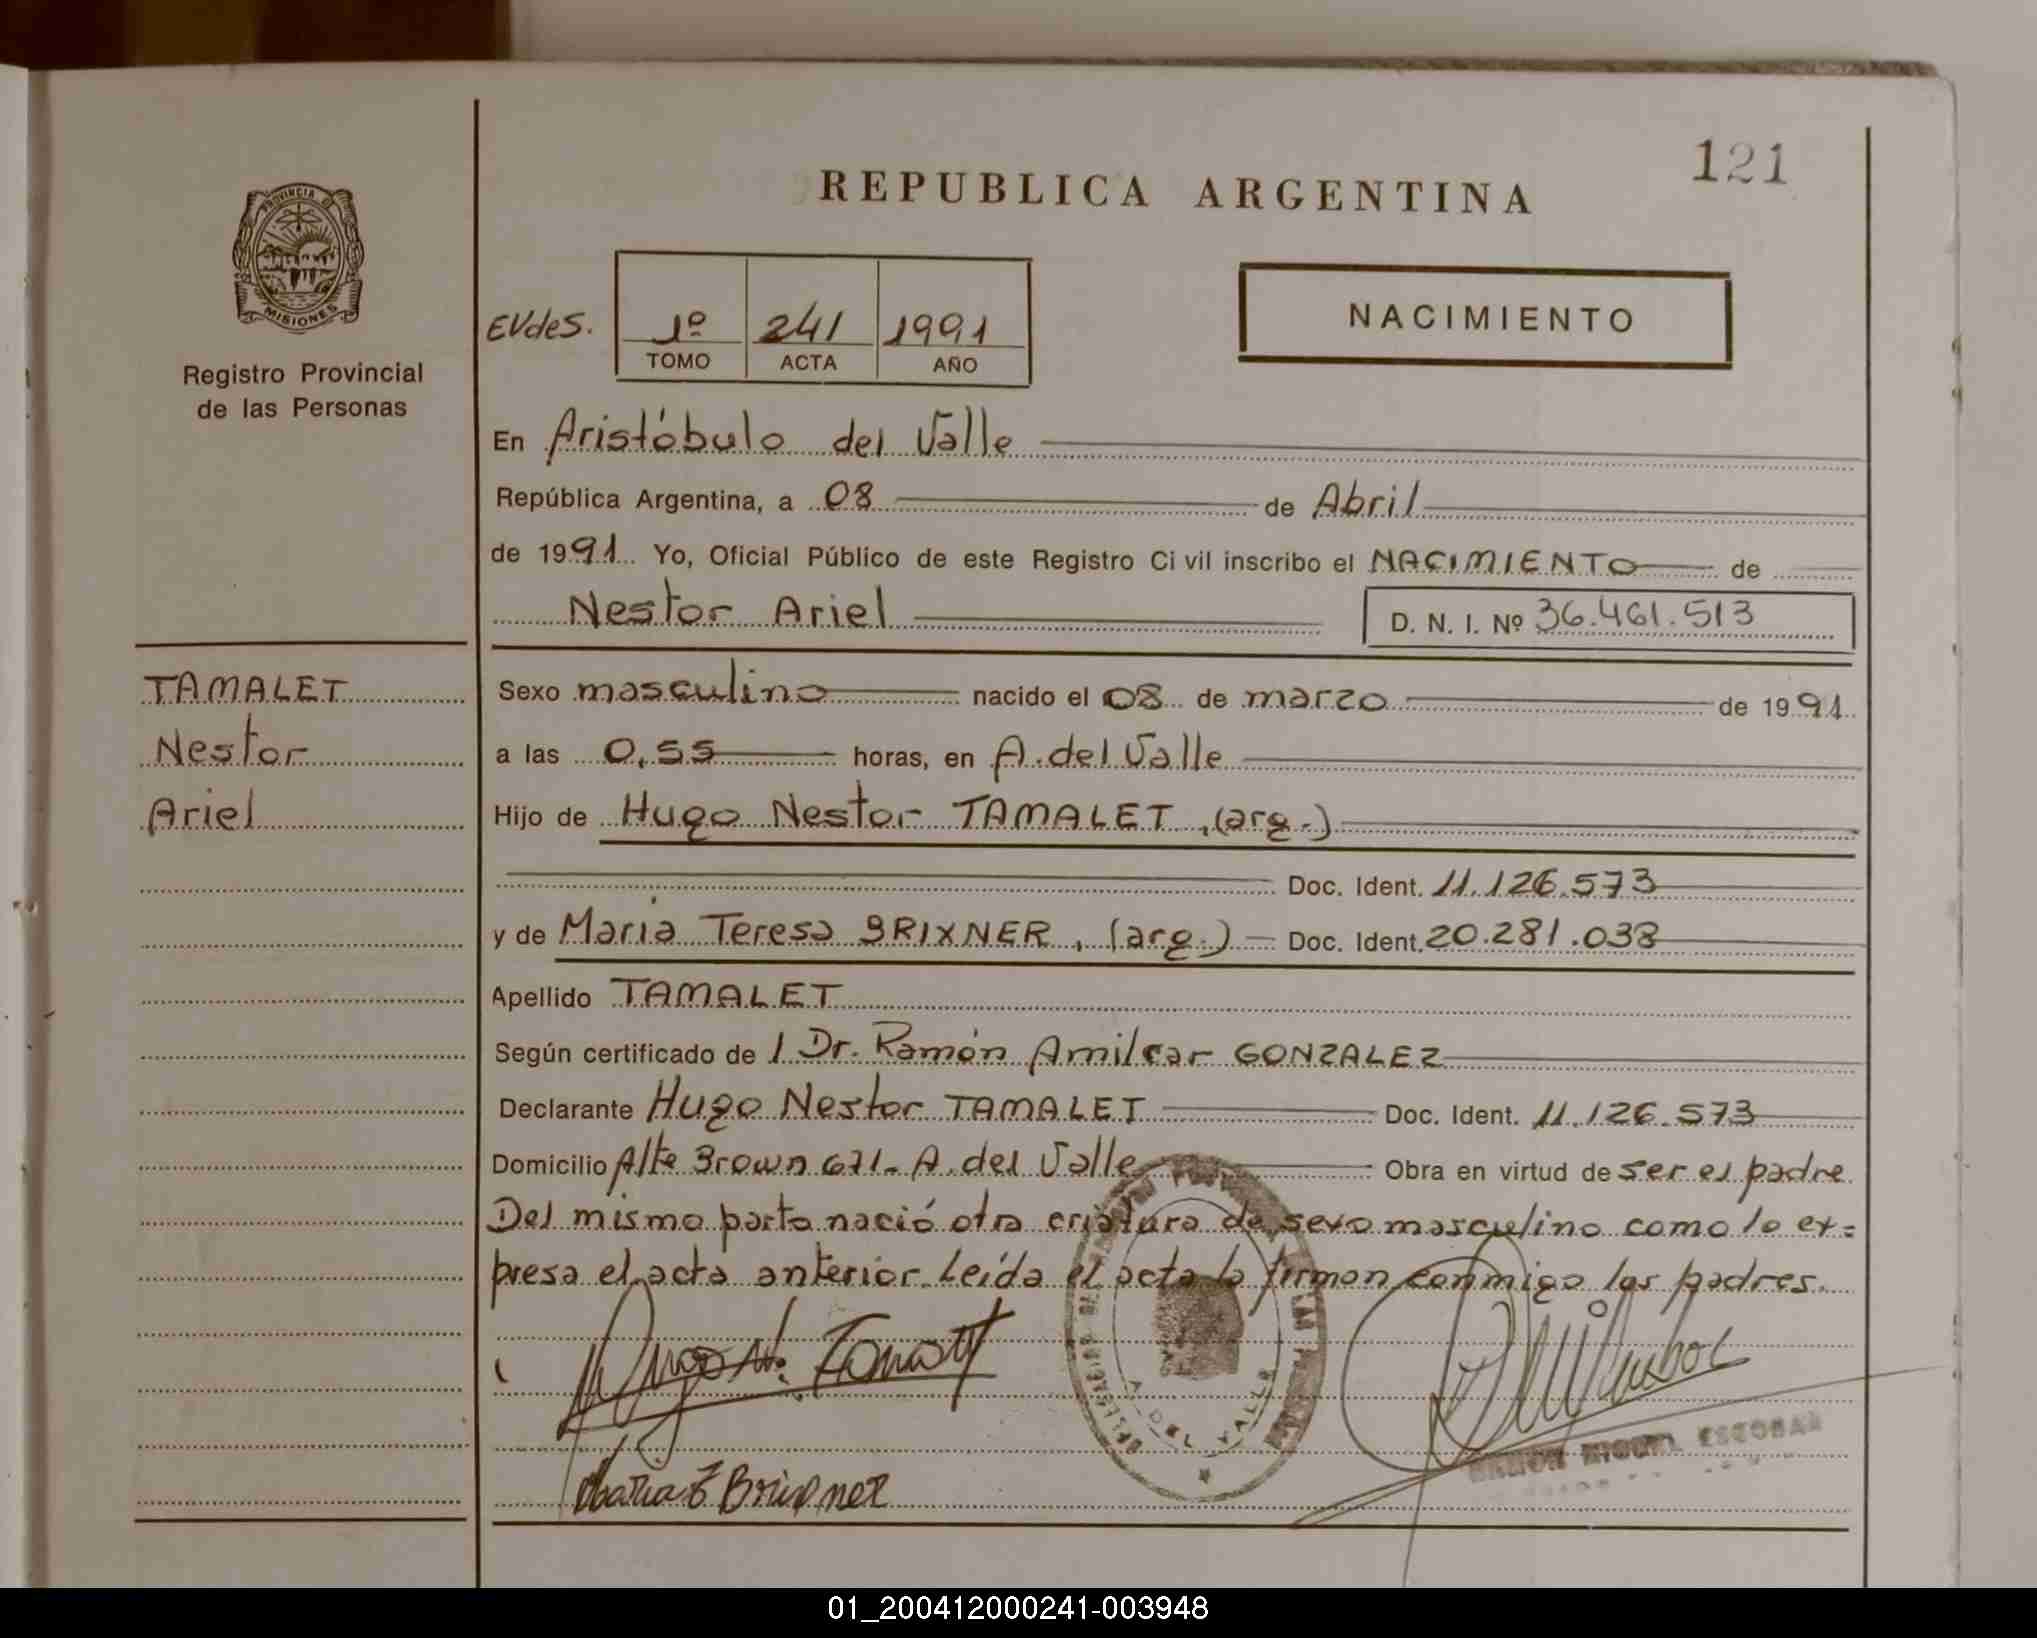 121
REPUBLICA ARGENTINA
PROVINCIA DE
MISIONES
Registro Provincial
de las Personas
EVdeS.
1º 241 1991
TOMO ACTA AÑO
NACIMIENTO
En Aristóbulo del Valle
República Argentina, a 08 de Abril
de 1991 Yo, Oficial Público de este Registro Ci vil inscribo el NACIMIENTO de
Nestor Ariel D. N. I. Nº 36.461.513
TAMALET
Nestor
Ariel
Sexo masculino nacido el 08 de marzo de 1991
a las 0,55 horas, en A. del Valle
Hijo de Hugo Nestor TAMALET, (arg.)
Doc. Ident. 11.126.573
y de Maria Teresa BRIXNER, (arg.) Doc. Ident. 20.281.038
Apellido TAMALET
Según certificado de l Dr. Ramón Amilcar GONZALEZ
Declarante Hugo Nestor TAMALET Doc. Ident. 11.126.573
Domicilio Alte Brown 671- A. del Valle Obra en virtud de ser el padre
Del mismo parto nació otra criatura de sexo masculino como lo ex=
presa el acta anterior. Leída el acta la firman conmigo los padres.
A. DEL VALLE
RAMON MIGUEL ESCOBAR
Maria T Brixner
01_200412000241-003948